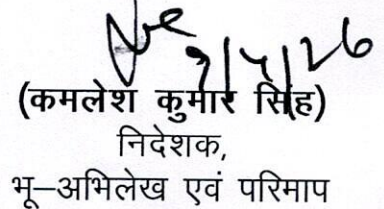 9/4/26
(कमलेश कुमार सिंह)
निदेशक,
भू–अभिलेख एवं परिमाप